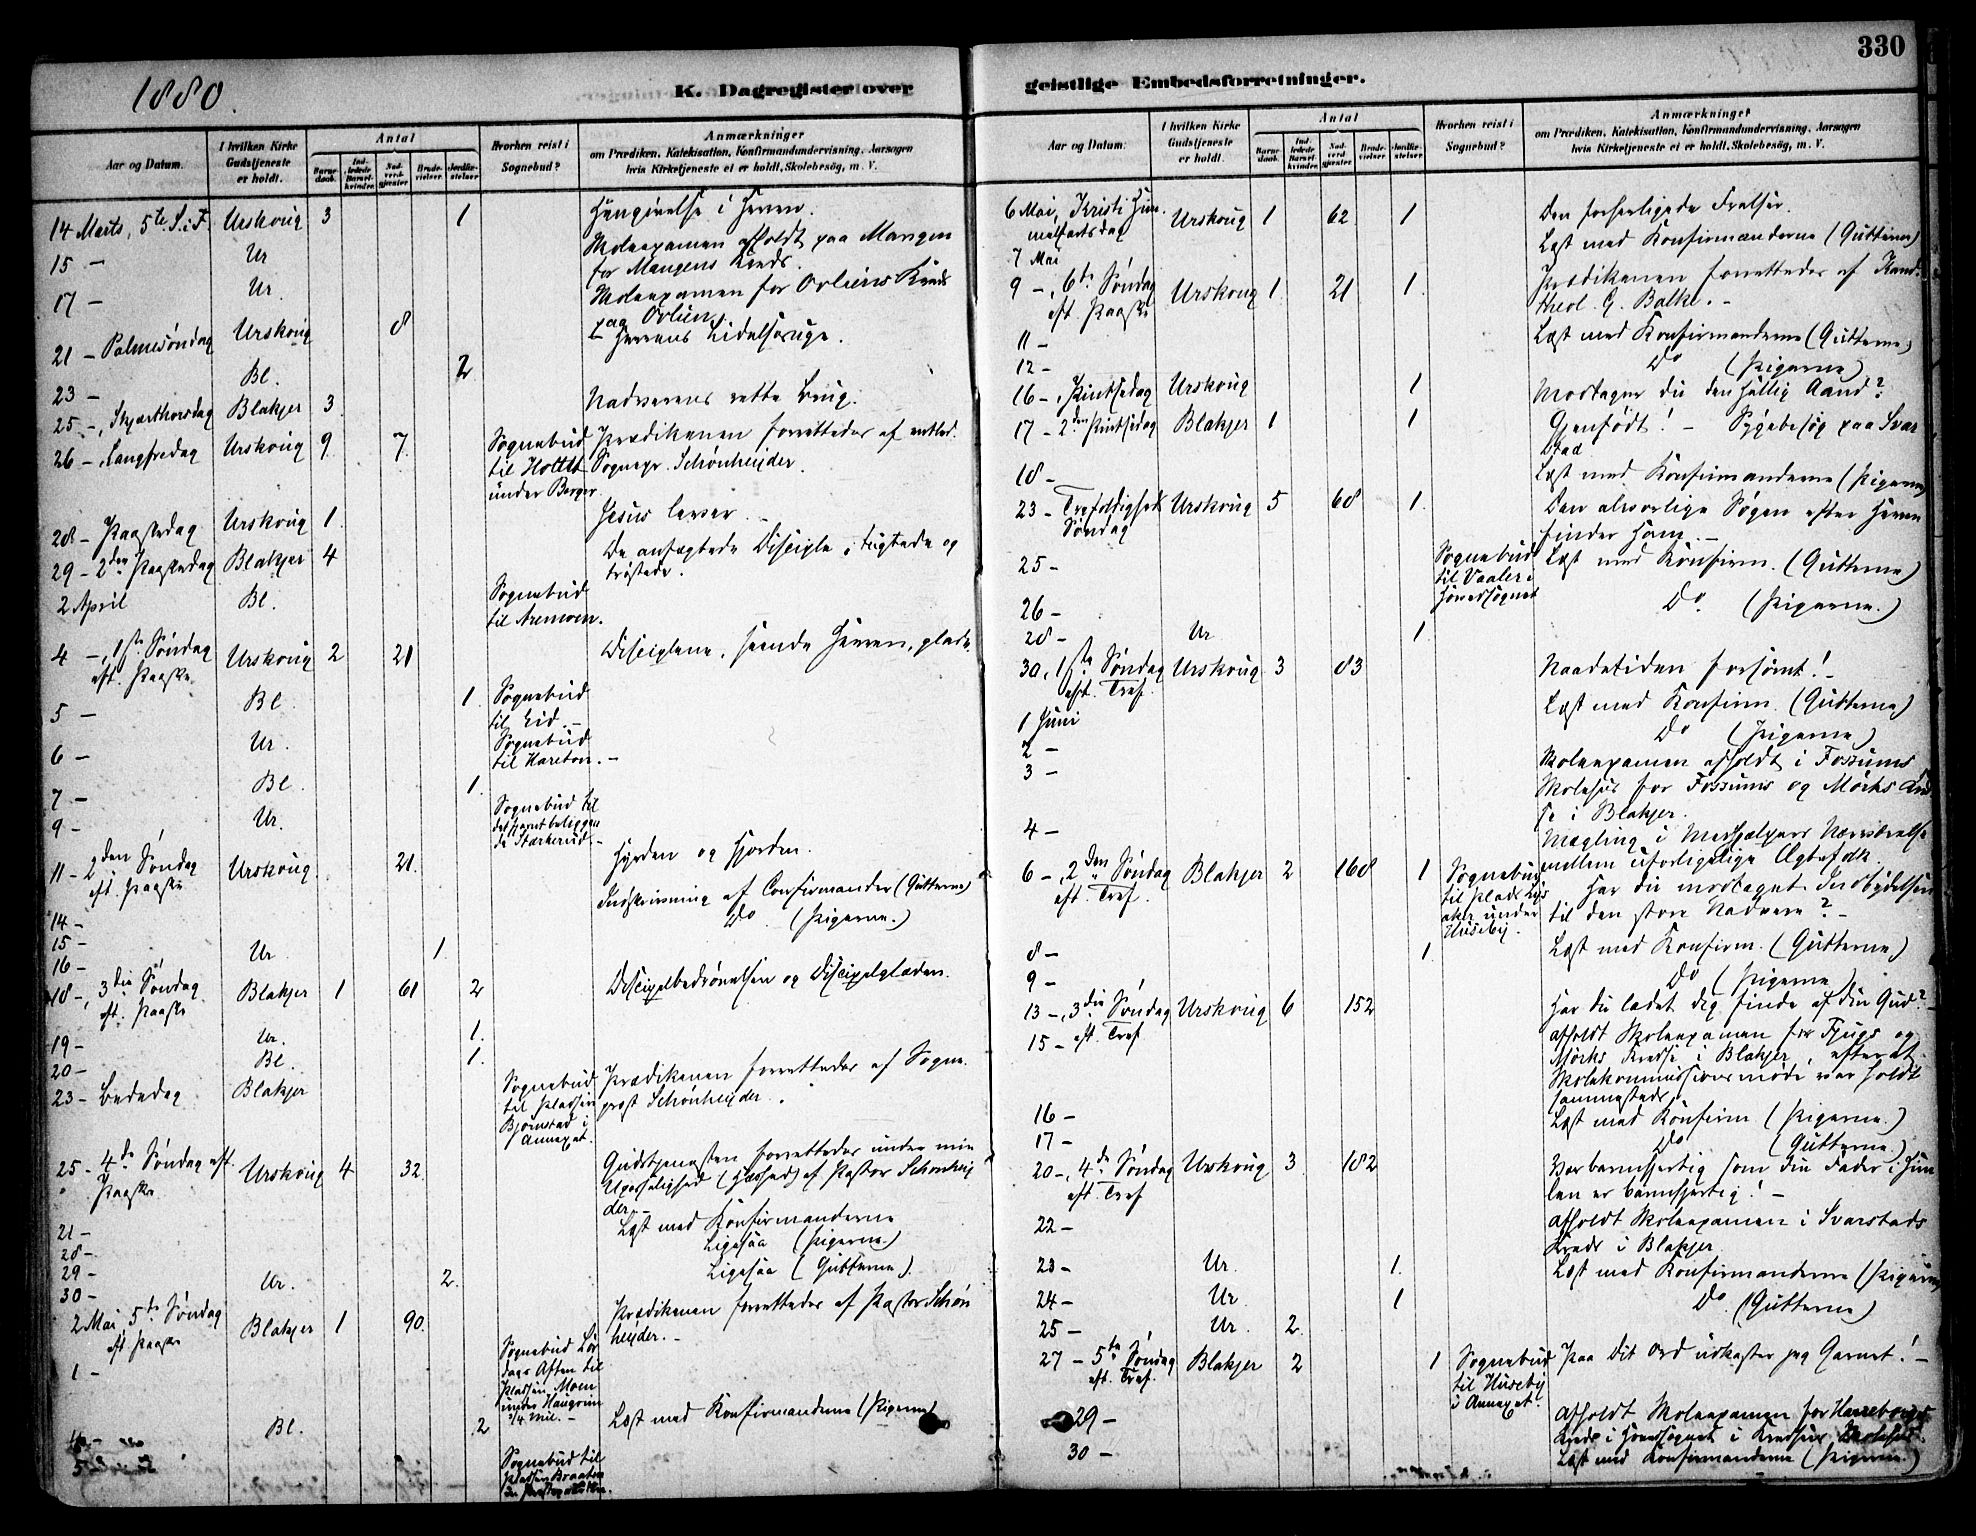 330
1880.
K. Dagregister over geistlige Embedsforretninger.
Aar og Datum.
I hvilken Kirke Gudstjeneste er holdt.
Antal
Barnedaab.
Indledede Barselkvinder.
Nadverdgjester
Brudevielser.
Jordfæstelser
Hvorhen reist i Sognebud?
Anmærkninger
om Prædiken, Katekisation, Konfirmandundervisning, Aarsagen
hvis Kirketjeneste ei er holdt, Skolebesøg, m. V.
14 Marts, 5te S. i F. Urskoug 3 1 Hengivelse i Herren.
15 – Ur Skoleexamen afholdt paa Mangen
for Mangens Kreds.
17 – Ur. Skoleexamen for Orliens Kreds
paa Orlien.
21 – Palmesøndag Urskoug 8 Herrens Lidelsesuge.
23 – Bl. 2
25 –, Skjærthorsdag Blakjer 3 Nadverens rette Brug.
26 –, Langfredag Urskoug 9 7 Sognebud Prædikenen forrettedes af entled.
til Holtet Sognepr. Schønheyder.
under Berger
28 – Paaskedag Urskoug 1. Jesus lever.
29 – 2den Paaskedag Blakjer 4 De anfægtede Disciple, tugtede og
trøstede.
2 April Bl. Sognebud
til Aremoen.
4 –, 1ste Søndag Urskoug 2 21 Disciplene, seende Herren, glade.
eft. Paaske
5 – Bl. 1. Sognebud
til Eid. –
6 – Ur. Sognebud
til Hareton. –
7 – Bl. 1.
9 – Ur. Sognebud til
11 – 2den Søndag Urskoug 21. Hyrden og Hjorden.
eft. Paaske
14 – Indskrivning af Confirmander (Gutterne)
15 – Do (Pigerne.)
16 – Ur. 1.
18 –, 3die Søndag Blakjer 1 61 2 Discipelbedrøvelsen og Discipelglæden.
eft. Paaske
19 – Ur. 1.
20 – Bl. 1.
23 – Bededag Blakjer Sognebud Prædikenen forrettedes af Sogne-
til Pladsen prest Schønheyder.
Bjørnstad i
Annexet.
25 – 4de Søndag eft. Urskoug 4 32. Gudstjenesten forrettedes under min
Paaske Upasselighed (Hæshed) af Pastor Schønhey
der. –
21 – Læst med Konfirmanderne
28 – Ligesaa (Pigerne.)
29 – Ligesaa (Gutterne).
30 – Ur. 2.
2 Mai 5te Søndag Blakjer 1 90. Prædikenen forrettedes af Pastor Schøn
eft. Paaske heyder. –
1 – Sognebud Lør
dags Aften til
Pladsen Moen
under Haugrim
3/4 Mil. –
4 – Bl. 2 Læst med Konfirmanderne (Pigerne)
5 – Sognebud til
Pladsen Braaten
Aar og Datum.
I hvilken Kirke Gudstjeneste er holdt.
Antal
Barnedaab.
Indledede Barselkvinder.
Nadverdgjester
Brudevielser.
Jordfæstelser
Hvorhen reist i Sognebud?
Anmærkninger
om Prædiken, Katekisation, Konfirmandundervisning, Aarsagen
hvis Kirketjeneste ei er holdt, Skolebesøg, m. V.
6 Mai, Kristi Him- Urskoug 1 62 1 Den forherligede Frelser.
melfartsdag
7 Mai Læst med Konfirmanderne (Gutterne)
9 –, 6te Søndag Urskoug 1. 21 1. Prædikenen forrettedes af Kand.
eft. Paaske theol. G. Balke. –
11 – Læst med Konfirmanderne (Gutterne)
12 – Do (Pigerne)
16 –, Pintsedag Urskoug 1 Modtager du den hellig Aand?
17 – 2den Pintsedag Blakjer 1 1 Gjenfødt! – Sygebesøg paa Svar
stad
18 – Læst med Konfirmanderne (Pigerne)
23 – Trefoldigheds Urskoug 5 68 1. Den alvorlige Søgen efter Herren
Søndag finder ham. –
25 – Sognebud Læst med Konfirm. (Gutterne)
til Vaaler i
Hovedsognet
26 – Do. (Pigerne.)
28 – Ur 1
30, 1ste Søndag Urskoug 3 83 Naadetiden forsømt! –
eft. Tref.
1 Juni Læst med Konfirm. (Gutterne)
2 – Do (Pigerne)
3 – Skoleexamen afholdt i Fossums
Skolehus for Fossums og Mørks Kred
se i Blakjer.
4 – Mægling i Medhjælpers Nærværelse
mellem uforligelige Ægtefolk.
6 –, 2den Søndag Blakjer 2 168 1 Sognebud Har du modtaget Indbydelsen
eft. Tref. til Plads Lys til den store Nadvere? –
aker under
Huseby.
8 – 1 Læst med Konfirm. (Gutterne)
9 – Do (Pigerne
13 –, 3die Søndag Urskoug 6 152 Har du ladet dig finde af din Gud?
eft. Tref
15 – Afholdt Skoleexamen for Tjugs og
Mørks Kredse i Blakjer, efterat
Skolekommissionsmøde var holdt
sammesteds.
16 – Læst med Konfirm (Pigerne)
17 – Do (Gutterne)
20 –, 4de Søndag Urskoug 3 182 Vær barmhjertig som din Fader i Him
eft. Tref len er barmhjertig! –
22 – Afholdt Skoleexamen i Svarstads
Kreds i Blakjer
23 – Ur. 1. Læst med Konfirmanderne (Pigerne)
24 – Ur. 1 Do. (Gutterne)
25 – Ur. 2.
27 – 5te Søndag Blakjer 2 1 Sognebud Paa dit Ord udkaster jeg Garnet! –
eft. Tref. til Huseby
i Annexet.
29 – Afholdt Skoleexamen for Harreborgs
Kreds i Hovedsognet i Kredsens Skolehus.
30 – Læst med Konfirmanderne (Pigerne.)